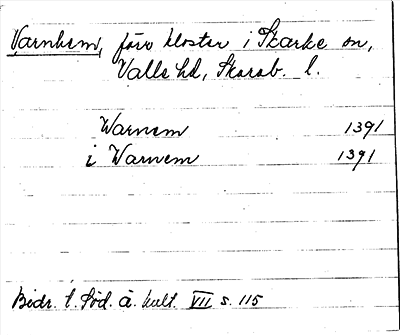 Varnhem, förv kloster i Skarke sn,
Valle hd, Skarab. l.
Warnem 1391
i Warnem 1391
Bidr. t. Söd. Ä. kult. VII s. 115